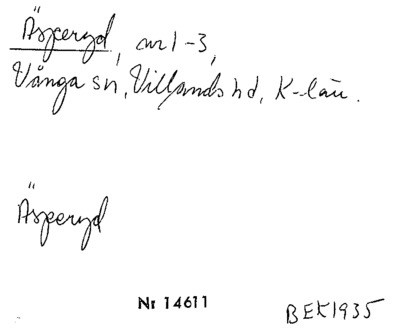 Äsperyd, nr 1-3,
Vånga sn, Villands hd, K-län.
Äsperyd
Nr 14611
BEK 1935